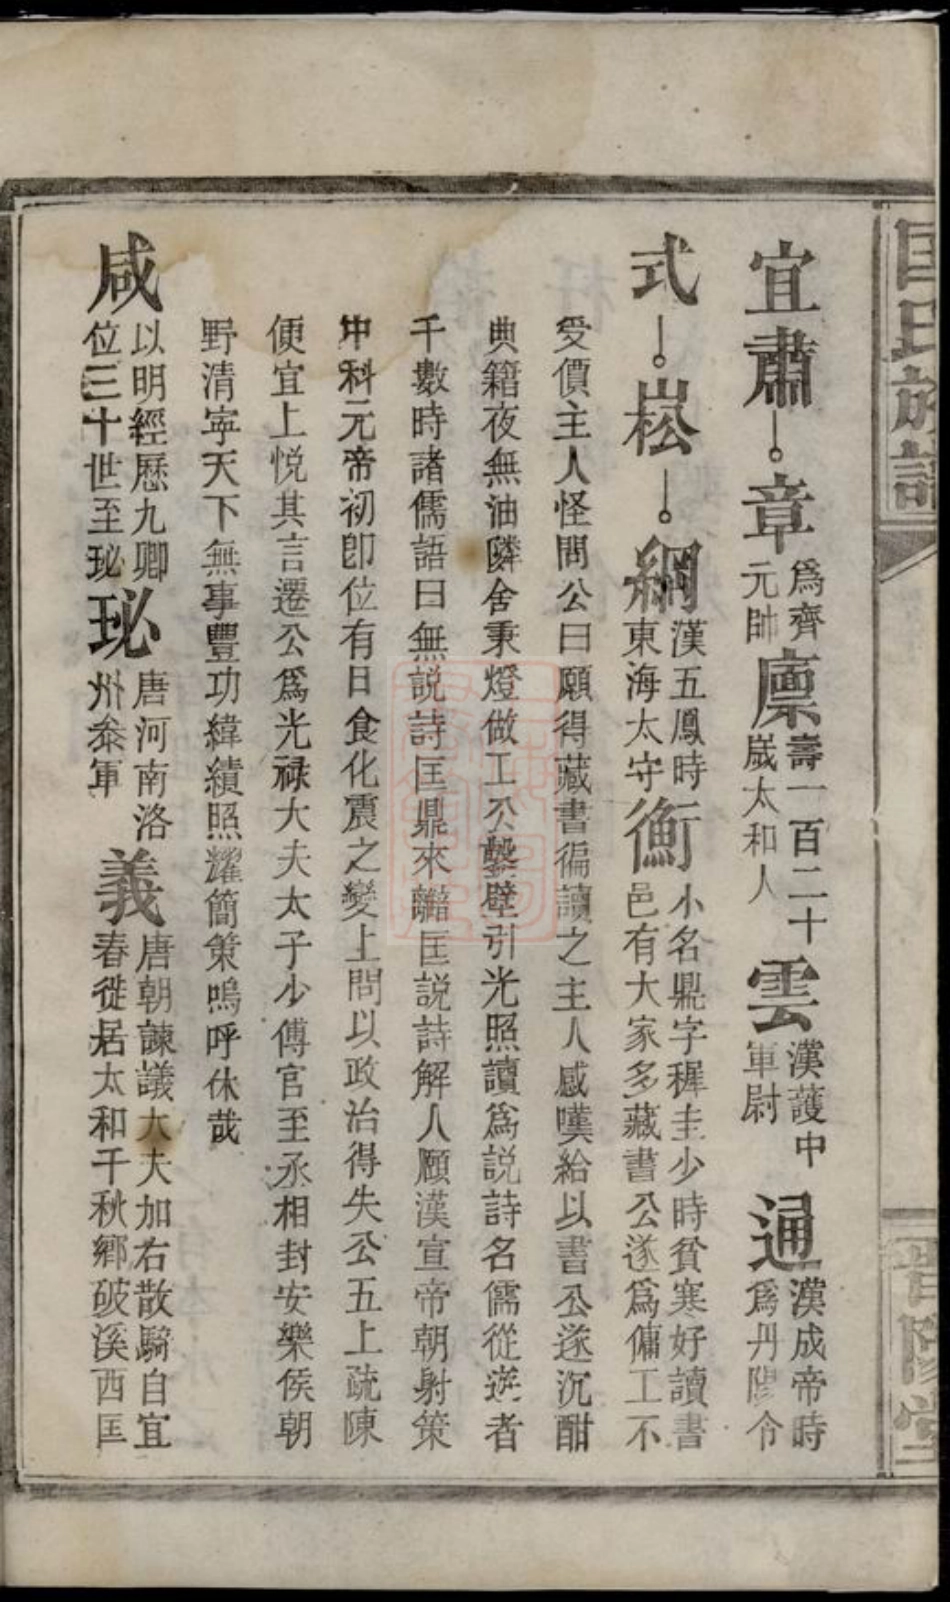 匡氏族譜
晉陽堂
宜肅章為齊元帥廩壽一百二十嵗太和人雲漢護中軍尉通漢成帝時為丹陽令
式崧綱漢五鳳時東海太守衡小名鼎字穉圭少時貧寒好讀書邑有大家多藏書公遂為傭工不
受價主人怪問公曰願得藏書徧讀之主人感嘆給以書公遂沉酣
典籍夜無油隣舍秉燈做工公鑿壁引光照讀為説詩名儒從遊者
千數時諸儒語曰無説詩匡鼎來匡説詩解人願漢宣帝朝射策
中科元帝初卽位有日食化震之變上問以政治得失公五上疏陳
便宜上悦其言遷公爲光禄大夫太子少傅官至丞相封安樂侯朝
野清寧天下無事豐功緯績照耀簡策嗚呼休哉
咸以明經歷九卿位三十世至珌珌唐河南洛州叅軍義唐朝諫議大夫加右散騎自宜春徙居太和千秋鄉破溪西匡